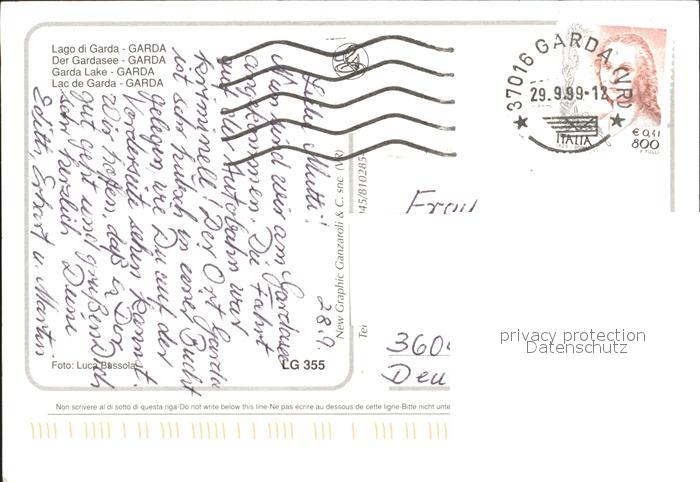 Lago di Garda - GARDA
Der Gardasee - GARDA
Garda Lake - GARDA
Lac de Garda - GARDA
28.9.
Liebe Mutti!
Nun sind wir am Gardasee
angekommen. Die Fahrt
auf der Autobahn war
kriminell! Der Ort Garda
ist sehr hübsch in einer Bucht
gelegen, wie Du auf der
Vorderseite sehen kannst.
Wir hoffen, daß es Dir
gut geht und grüßen Dich
sehr herzlich Deine
Edith, u. Martin
Foto: Luca Bussola
LG 355
New Graphic Ganzaroli & C. snc (VR)
Tel
045/810285
37016 GARDA (VR)
29.9.99-12
ITALIA
€ 0,41
800
Frau
360
Deu
privacy protection
Datenschutz
Non scrivere al di sotto di questa riga-Do not write below this line-Ne pas écrire au dessous de cette ligne-Bitte nicht unter